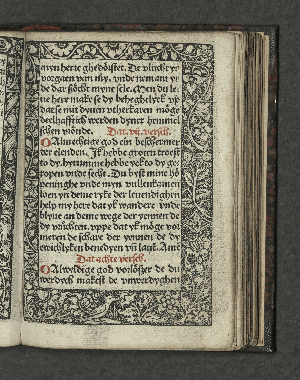 myn herte ghedörstet. De vlucht ys
vorgaen van my. vnde nemant ys
de dar söcht myne sele. Men du le-
ue here make se dy beheghelyck vp
dat se mit dynen vtherkaren möge
deelhafftich werden dyner hemmel
schen vröude. Dat vij. versch.
O Almechtige god ein beschermer
der elenden. Ik hebbe gropen troest
to dy. by tumme hebbe yck to dy ge-
ropen vnde secht. Du byst mine hö
peninghe vnde myn vullenkamen
loen yn deme ryke der leuendighen
help my here dat yk wandere vnde
blyue an deme wege der yennen de
dy vrüchten. vppe dat yk möge vor
meren de schare der yennen de dy
ewichlyken benedyen vñ lauē. Amē
Dat achte versch.
O Alweldige god vorlöszer de du
werdych makest de vnwerdyghen